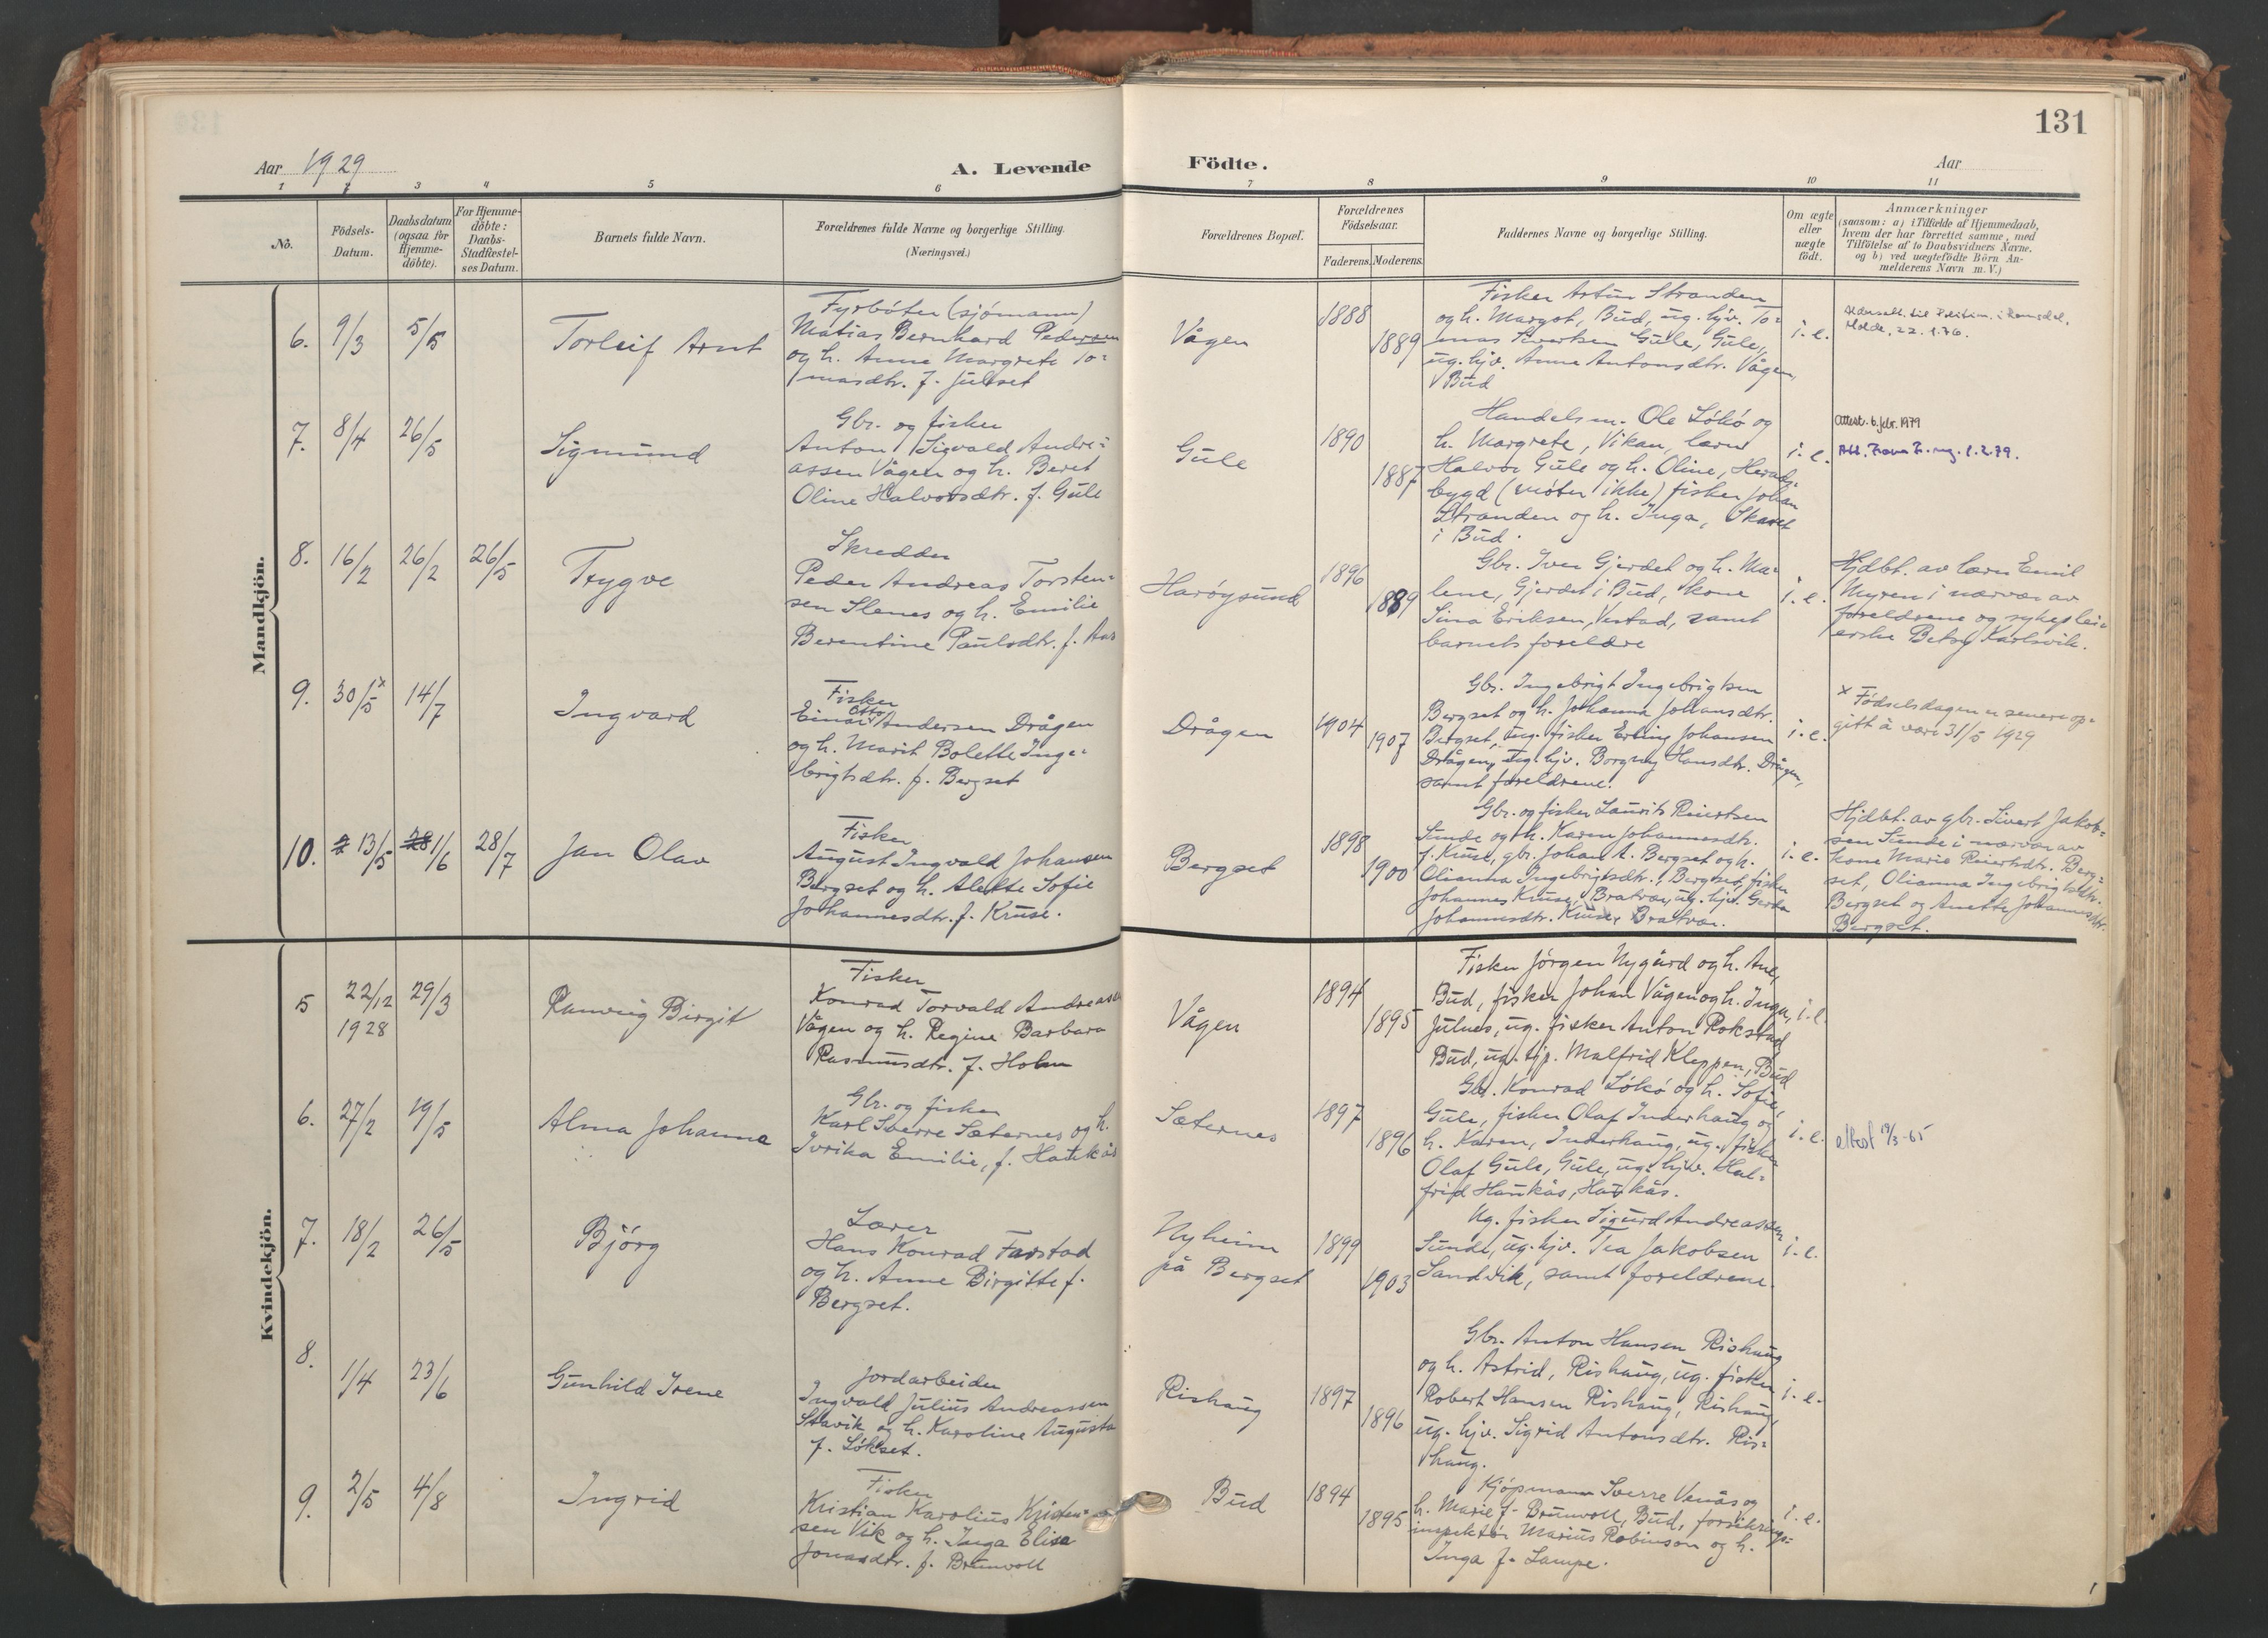 131
Aar 1929
A. Levende Födte.
Aar
1 2 3 4 5 6 7 8 9 10 11
No.
Födsels-
Datum.
Daabsdatum
(ogsaa for
Hjemme-
döbte).
For Hjemme-
döbte:
Daabs-
Stadfæstel-
ses Datum.
Barnets fulde Navn.
Forældrenes fulde Navne og borgerlige Stilling.
(Næringsvei.)
Forældrenes Bopæl.
Forældrenes
Födselsaar.
Faderens. Moderens.
Faddernes Navne og borgerlige Stilling.
Om ægte
eller
uægte
födt.
Anmærkninger
(saasom: a) i Tilfælde af Hjemmedaab,
hvem der har forrettet samme, med
Tilföielse af to Daabsvidners Navne,
og b) ved uægtefödte Börn An-
melderens Navn m. V.)
Mandkjön.
6. 9/3 5/5
Torleif Arnt
Fyrbøter (sjømann)
Matias Bernhard Pedersen
og h. Anne Margrete To=
masdtr. f. Julset
Vågen
1888
1889
Fisker Artur Stranden
og h. Margot, Bud, ug. hjv. To=
mas Sivertsen Gule, Gule,
ug. hjv. Anne Antonsdtr. Vågen,
Bud
i. e.
Aldersatt. til Politim. i Romsdal,
Molde, 22. 1.76.
7. 8/4 26/5
Sigmund
Gbr. og fisker
Anton Sigvald Andre=
assen Vågen og h. Beret
Oline Halvorsdtr. f. Gule
Gule
1890
1887
Handelsm. Ole Løkø og
h. Margrete, Vikan, lærer
Halvor Gule og h. Oline, Herøy=
bygd (møter ikke) fisker Johan
Stranden og h. Inga, Skaret
i Bud.
i. e.
Attest. 6. febr. 1979
8. 16/2 26/2 26/5
Trygve
Skredder
Peder Andreas Torsten=
sen Slenes og h. Emilie
Berentine Paulsdtr. f. Aas
Harøysund
1896
1889
Gbr. Iver Gjerdet og h. Ma=
lene, Gjerdet i Bud, kone
Sina Eriksen, Vestad, samt
barnets foreldre
i. e.
Hjdbt. av lærer Emil
Myren i nærvær av
foreldrene og sykeplei=
erske Betsy Karlsvik.
9. 30/5 x 14/7
Ingvard
Fisker
Einar Otto Andersen Drågen
og h. Marit Bolette Inge=
brigtsdtr. f. Bergset
Drågen
1904
1907
Gbr. Ingebrigt Ingebrigtsen
Bergset og h. Johanna Johansdtr.
Bergset, ug. fisker Erling Johansen
Drågen, ug. hjv. Borgny Hansdtr. Drågen,
samt foreldrene.
i. e.
x Fødselsdagen er senere op=
gitt å være 31/5 1929
10. 13/5 1/6 28/7
Jan Olav
Fisker
August Ingvald Johansen
Bergset og h. Alette Sofie
Johannesdtr. f. Kruse.
Bergset
1898
1900
Gbr. og fisker Laurits Reiertsen
Sunde og h. Karen Johannesdtr.
f. Kruse, gbr. Johan A. Bergset og h.
Olianna Ingebrigtsdtr., Bergset, fisker
Johannes Kruse, Bratvær, ug. hjv. Gerda
Johannesdtr. Kruse, Bratvær.
i. e.
Hjdbt. av gbr. Sivert Jakob=
sen Sunde i nærvær av
kone Marie Reiertsdtr. Berg=
set, Olianna Ingebrigtsdtr.
Bergset og Anette Johannesdtr.
Bergset.
Kvindekjön.
5 22/12 1928 29/3
Ranveig Birgit
Fisker
Konrad Torvald Andreassen
Vågen og h. Regine Barbara
Rasmusdtr. f. Holm
Vågen
1894
1895
Fisker Jørgen Nygård og h. Ane,
Bud, fisker Johan Vågen og h. Inga,
Julnes, ug. fisker Anton Rokstad,
Bud, ug. tjp. Malfrid Kleppen, Bud
i. e.
6. 27/2 19/5
Alma Johanna
Gbr. og fisker
Karl Sverre Sæternes og h.
Ivrika Emilie, f. Haukås
Sæternes
1897
1896
Gbr. Konrad Løkø og h. Sofie,
Gule, fisker Olaf Inderhaug og
h. Karen, Inderhaug, ug. fisker
Olaf Gule, Gule, ug. hjv. Hal=
frid Haukås, Haukås.
i. e.
attest 19/3-65
7. 18/2 26/5
Bjørg
Lærer
Hans Konrad Farstad
og h. Anne Birgitte f.
Bergset.
Nyheim
på Bergset
1899
1903
Ug. fisker Sigurd Andreassen
Sunde, ug. hjv. Tea Jakobsen
Sandvik, samt foreldrene.
i. e.
8. 1/4 23/6
Gunhild Irene
Jordarbeider
Ingvald Julius Andreassen
Stavik og h. Karoline Augusta
f. Løkset.
Rishaug
1897
1896
Gbr. Anton Hansen Rishaug
og h. Astrid, Rishaug, ug. fisker
Robert Hansen Rishaug, Rishaug,
ug. hjv. Sigrid Antonsdtr. Ris=
haug.
i. e.
9. 2/5 4/8
Ingrid
Fisker
Kristian Karolius Kristen=
sen Vik og h. Inga Elise
Jonasdtr. f. Brunvoll
Bud
1894
1895
Kjøpmann Sverre Venås og
h. Marie f. Brunvoll, Bud, forsikrings=
inspektør Marius Robinson og h.
Inga f. Lampe.
i. e.